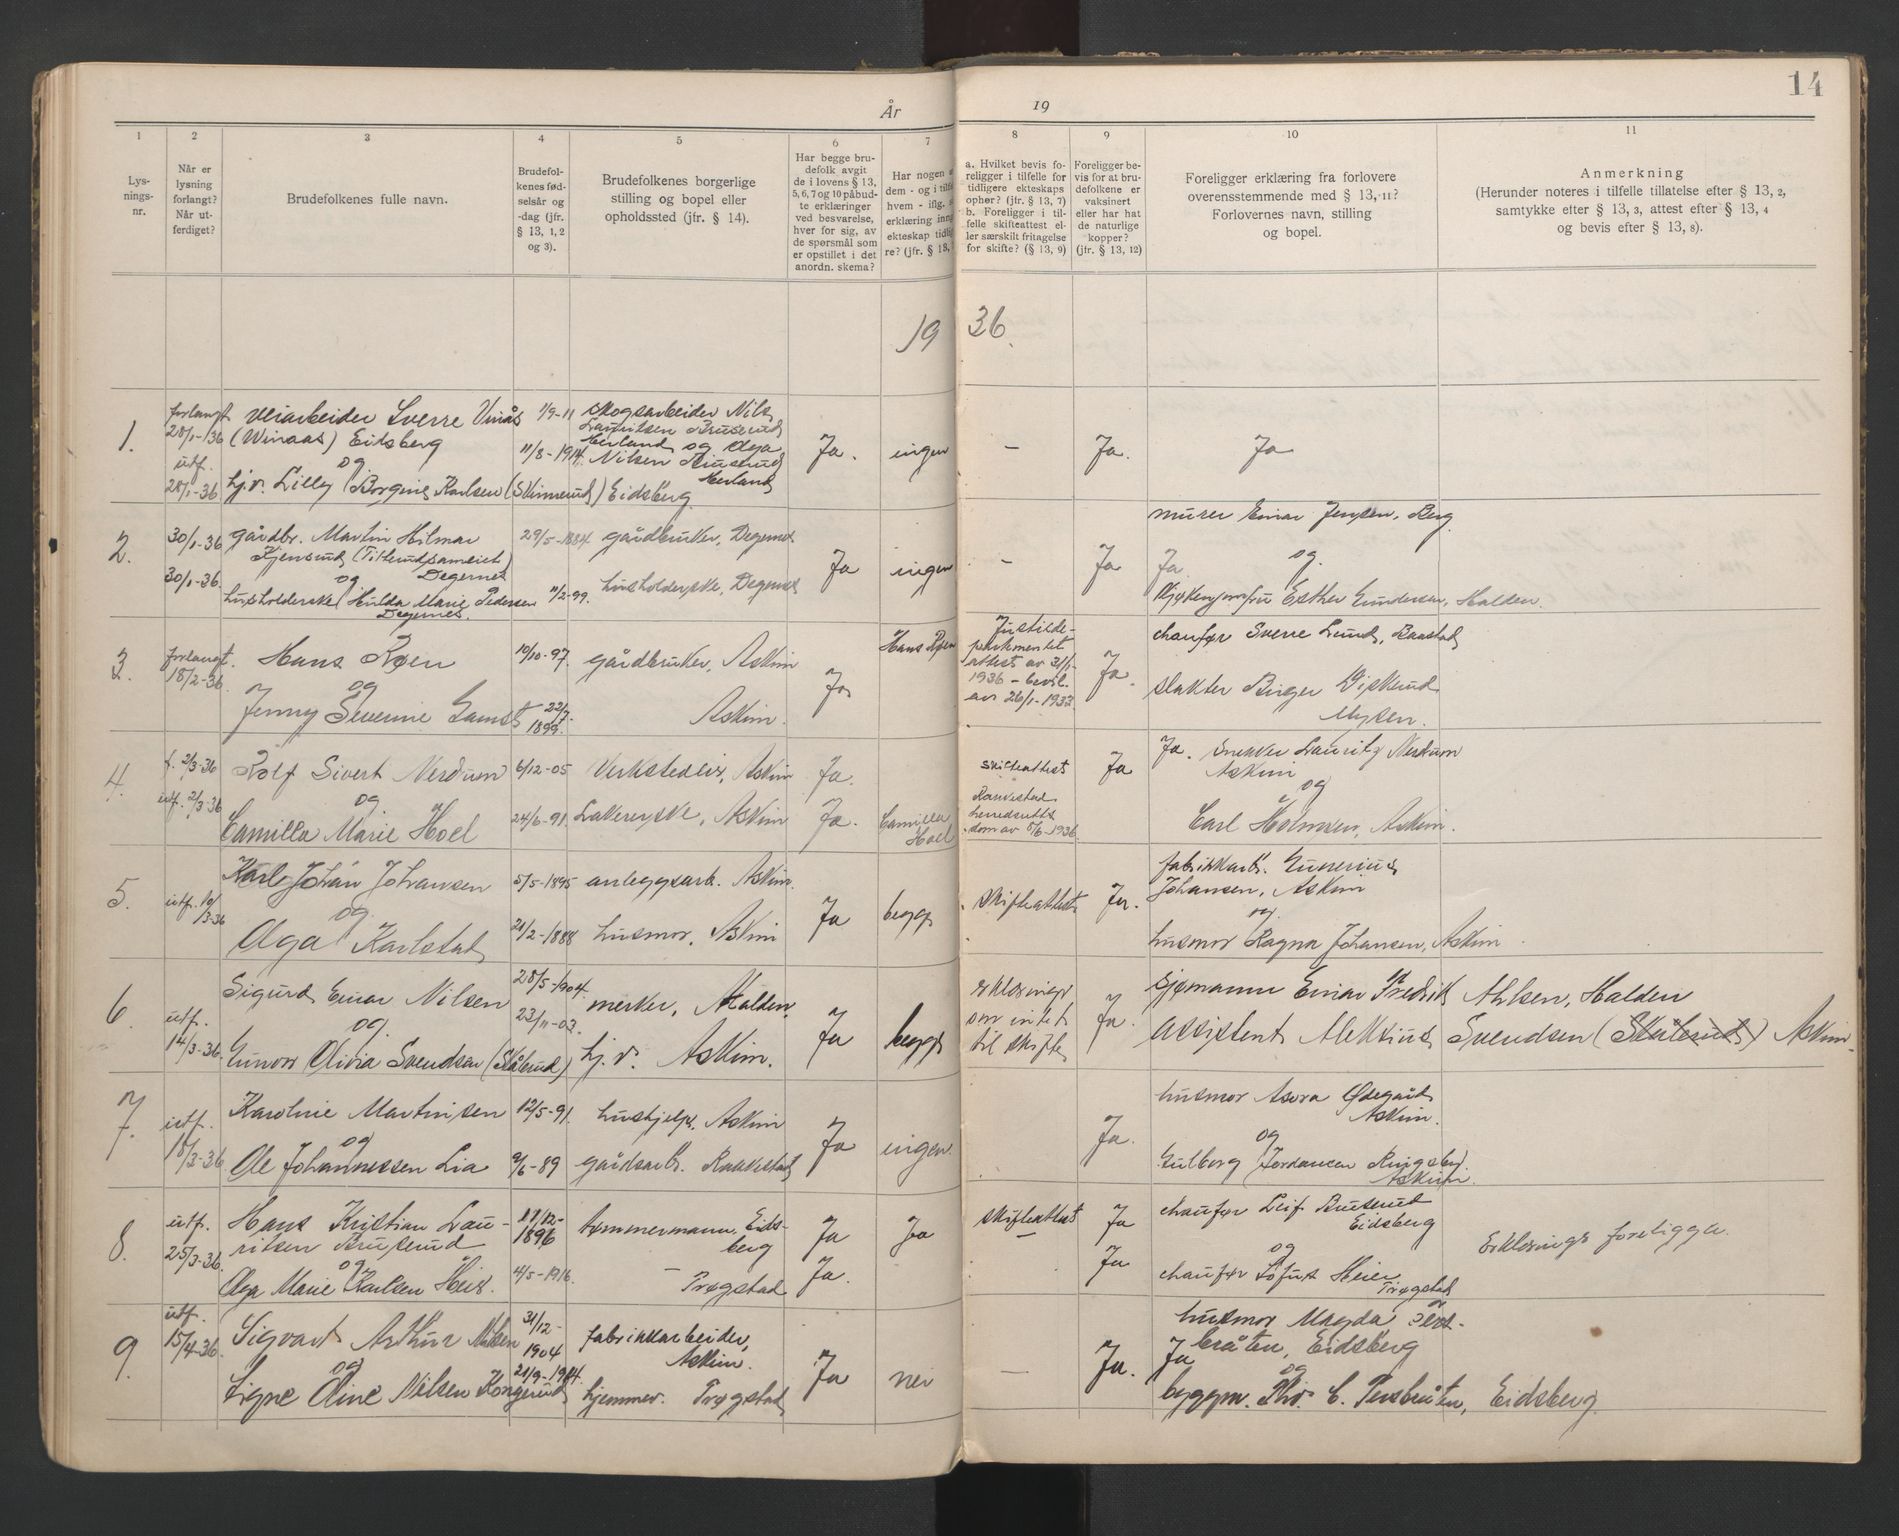 14
År
19
1
2
3
4
5
6
7
8
9
10
11
Lys-
nings-
nr.
Når er
lysning
forlangt?
Når ut-
ferdiget?
Brudefolkenes fulle navn.
Brudefol-
kenes fød-
selsår og
-dag (jfr.
§ 13, 1, 2
og 3).
Brudefolkenes borgerlige
stilling og bopel eller
opholdssted (jfr. § 14).
Har begge bru-
defolk avgit
de i lovens § 13,
5, 6, 7 og 10 påbud-
te erklæringer
ved besvarelse,
hver for sig, av
de spørsmål som
er opstillet i det
anordn. skema?
Har nogen
dem - og i tilf
hvem - iflg.
erklæring inng
ekteskap tidlig
re? (jfr. § 13,
a. Hvilket bevis fo-
religger i tilfelle for
tidligere ekteskaps
ophør? (jfr. § 13, 7)
b. Foreligger i til-
felle skifteattest el-
ler særskilt fritagelse
for skifte? (§ 13, 9)
Foreligger be-
vis for at bru-
defolkene er
vaksinert
eller har hat
de naturlige
kopper?
(jfr. § 13, 12)
Foreligger erklæring fra forlovere
overensstemmende med § 13, 11?
Forlovernes navn, stilling
og bopel.
Anmerkning
(Herunder noteres i tilfelle tillatelse efter § 13, 2,
samtykke efter § 13, 3, attest efter § 13, 4
og bevis efter § 13, 8).
19 36.
1.
forlangt
28/1-36
utf.
28/1-36
veiarbeider Sverre Vinås
(Winaas) Eidsberg
og
hj.v. Lilly Borgine Karlsen (Skinnerud) Eidsberg
1/9-11
11/8-1914
skogsarbeider Nils
Lauritsen Bruserud
Herland og Olga
Nilsen Bruserud
Herland
Ja.
ingen
-
Ja.
Ja
2.
30/1-36
30/1-36.
gårdbr. Martin Hilmar
Degernes
og
husholderske Hulda Marie Pedersen
Degernes.
29/5-1884
11/2-99.
gårdbruker, Degernes
husholderske, Degernes
Ja
ingen
-
Ja
murer Einar Jensen, Berg
Ja. og
Kjøkenjomfru Esther Gundersen, Halden.
3.
forlangt.
18/2-36.
Hans Røen
og
Jenny Severine Gamst
10/10-97.
22/7-
1899.
gårdbruker, Askim
Askim.
Ja
Hans Røen
Justisde-
partementet
attest av 31/1-
1936 - bevil.
av 26/1-1932
Ja.
chaufør Sverre Lund, Baastad
slakter Birger
Mysen.
4.
f. 2/3-36
utf. 2/3-36
Rolf Sivert Nerdum
og
Camilla Marie Hoel
6/12-05
24/6-91.
Verkstedeier, Askim
Lakererske, Askim
Ja.
Ja.
Camilla
Hoel
skifteattest
Rakkestad
herredsretts
dom av 5/6-1936
Ja
Ja. snekker Lauritz Nerdum
Askim
og
Carl Holmsen, Askim.
5.
utf. 10/
3-36
Karl Johan Johansen
og
Olga Karlstad
5/5-1895
21/2-1888
anleggsarb. Askim.
husmor, Askim
Ja
begge
skifteattest
Ja.
fabrikkarb. Gunerius
Johansen, Askim
og.
husmor Ragna Johansen, Askim
6.
utf.
14/3-36.
Sigurd Einar Nilsen
og.
Gunvor Olivia Svendsen (Skålerud)
28/5-1904.
23/11-03.
merker, Halden.
hj. v. Askim.
Ja
begge
erklæringer
om intet
til skifte
Ja.
sjømann Einar Fredrik Ahlsen, Halden
Assistent Aleksius Svendsen (Skålerud) Askim.
7.
utf.
18/3-36.
Karoline Martinsen
og
Ole Johannessen Lia
12/5-91.
9/6-89
hushjelp. Askim
gårdsarb. Rakkestad
Ja
ingen.
Ja.
husmor Asora Ødegård
Askim.
og
Gulborg Jordansen Ringsby.
Askim.
8.
utf.
25/3-36.
Hans Kristian Lau-
ritsen Bruserud
og
Olga Marie Karlsen Heier.
17/12-
1896
4/5-1916.
tømmermann, Eids-
berg
- Trøgstad
Ja
Ja.
Ja
skifteattest
-
Ja
Ja
chaufør Leif Bruserud
Eidsberg
og
chaufør Lofus Heier
Trøgstad
Erklærings foreligger.
9.
utf.
15/4-36.
Sigvart Arthur Nilsen
og
Signe Oline Nilsen Kongerud
31/12-
1904
21/9-1914.
fabrikkarbeider,
Askim.
hjemmev. Trøgstad
Ja
nei
-
Ja.
husmor Magda Pers-
bråten, Eidsberg
Ja og
byggm. Thv. C. Persbråten, Eidsberg.